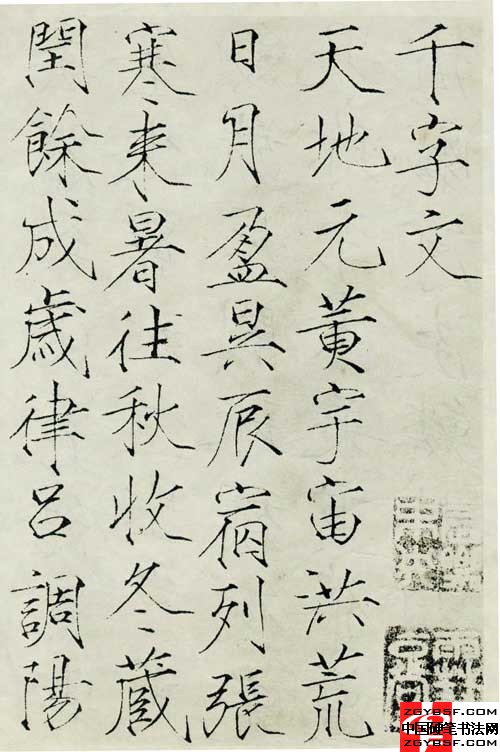 千字文
天地元黄宇宙洪荒
日月盈昃辰宿列張
寒來暑往秋收冬蔵
閏餘成歲律呂調陽
ZGYBSF.COM
中国硬笔书法网
ZGYBSF.COM